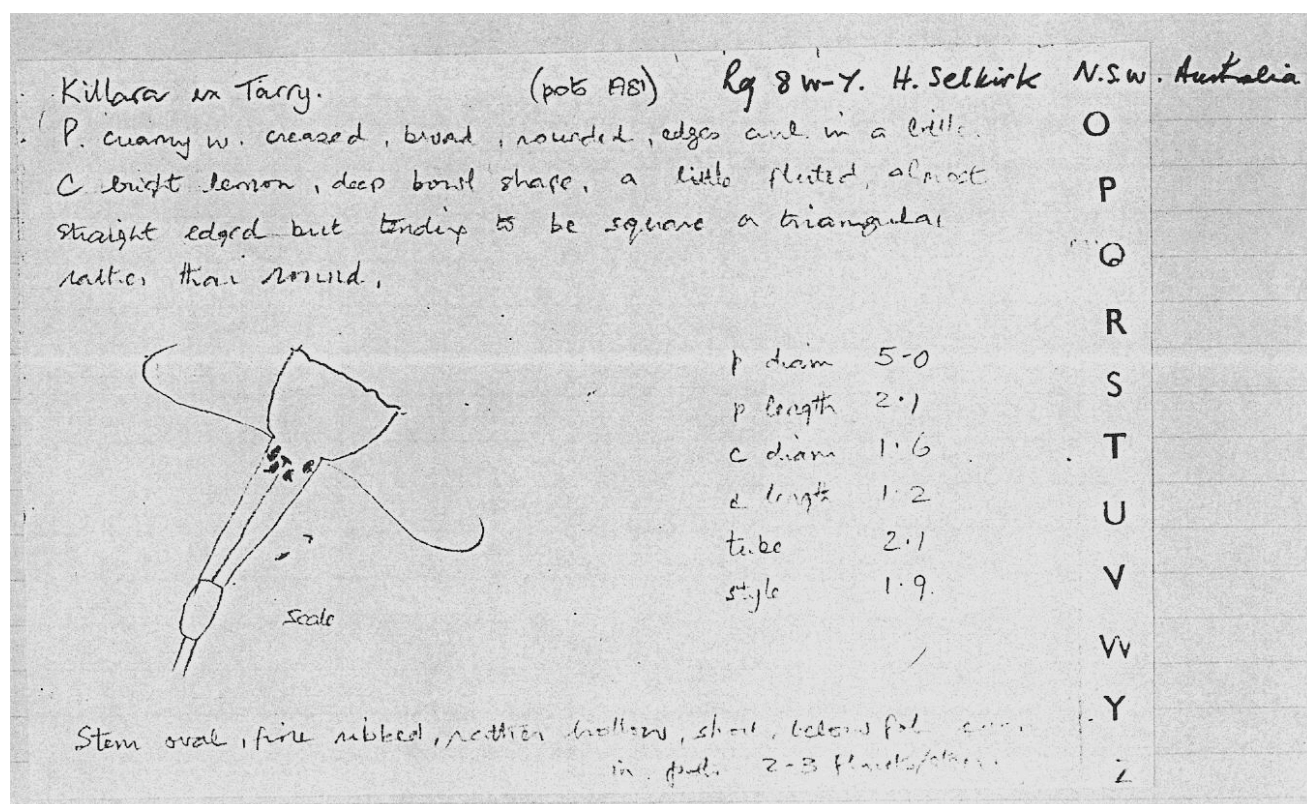 Killara ex Tarry. (pots A81) Rg 8 W-Y. H. Selkirk N.S.W. Australia
P. creamy w. creased, broad, rounded, edges curl in a little.
C bright lemon, deep bowl shape, a little fluted, almost
straight edged but tending to be square or triangular
rather than round.
O
P
Q
R
S
T
U
V
W
Y
Z
p diam 5.0
p length 2.1
c diam 1.6
c length 1.2
tube 2.1
style 1.9.
Scale
Stem oval, fine ribbed, rather hollow, short, below fol
in 2-3